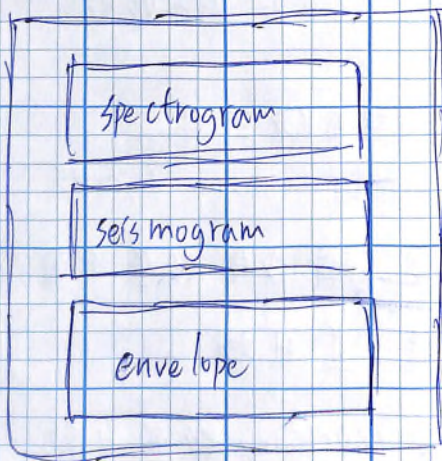 spectrogram
seismogram
envelope